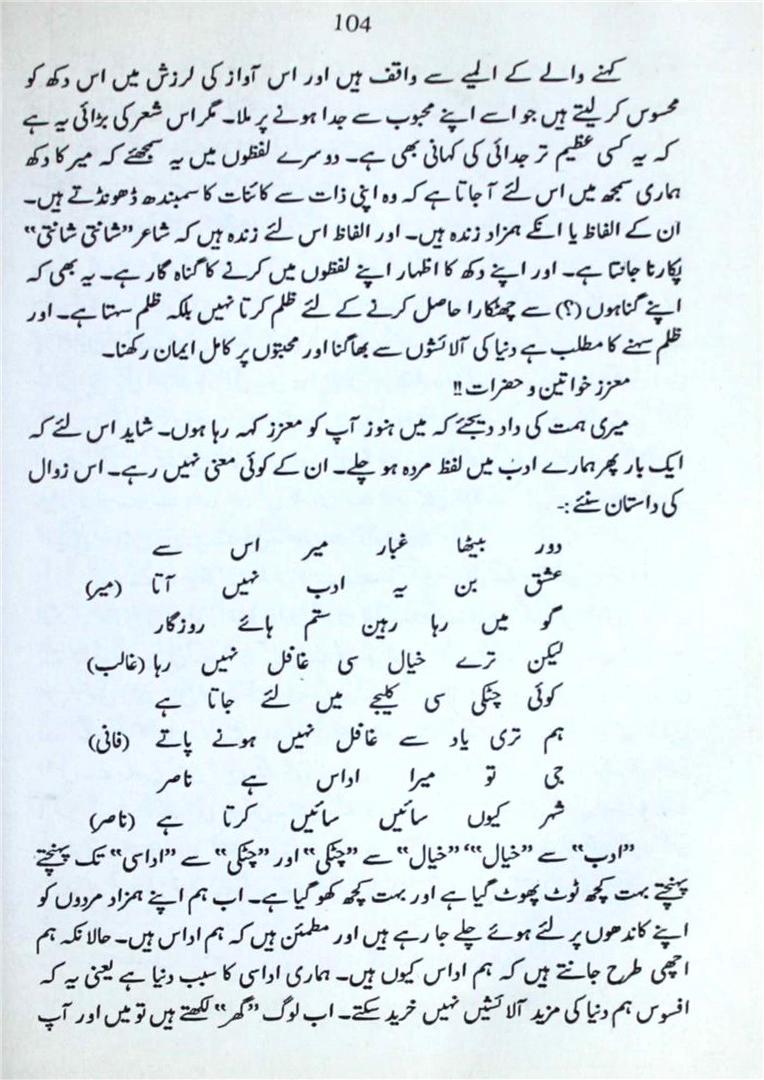 104
کہنے والے کے المیے سے واقف ہیں اور اس آواز کی لرزش میں اس دکھ کو
محسوس کر لیتے ہیں جو اسے اپنے محبوب سے جدا ہونے پر ملا۔ مگر اس شعر کی بڑائی یہ ہے
کہ یہ کسی عظیم تر جدائی کی کہانی بھی ہے۔ دوسرے لفظوں میں یہ سمجھئے کہ میر کا دکھ
ہماری سمجھ میں اس لئے آ جاتا ہے کہ وہ اپنی ذات سے کائنات کا سمبندھ ڈھونڈتے ہیں۔
ان کے الفاظ یا انکے ہمزاد زندہ ہیں۔ اور الفاظ اس لئے زندہ ہیں کہ شاعر ”شانتی شانتی“
پکارنا جانتا ہے۔ اور اپنے دکھ کا اظہار اپنے لفظوں میں کرنے کا گناہ گار ہے۔ یہ بھی کہ
اپنے گناہوں (؟) سے چھٹکارا حاصل کرنے کے لئے ظلم کرتا نہیں بلکہ ظلم سہتا ہے۔ اور
ظلم سہنے کا مطلب ہے دنیا کی آلائشوں سے بھاگنا اور محبتوں پر کامل ایمان رکھنا۔
معزز خواتین و حضرات!!
میری ہمت کی داد دیجئے کہ میں ہنوز آپ کو معزز کہہ رہا ہوں۔ شاید اس لئے کہ
ایک بار پھر ہمارے ادب میں لفظ مردہ ہو چلے۔ ان کے کوئی معنی نہیں رہے۔ اس زوال
کی داستان سنئے :-
دور بیٹھا غبار میر اس سے
عشق بن یہ ادب نہیں آتا (میر)
گو میں رہا رہین ستم ہائے روزگار
لیکن ترے خیال سی غافل نہیں رہا (غالب)
کوئی چٹکی سی کلیجے میں لئے جاتا ہے
ہم تری یاد سے غافل نہیں ہونے پاتے (فانی)
جی تو میرا اداس ہے ناصر
شہر کیوں سائیں سائیں کرتا ہے (ناصر)
”ادب“ سے ”خیال“‘ ”خیال“ سے ”چٹکی“ اور ”چٹکی“ سے ”اداسی“ تک پہنچتے
پہنچتے بہت کچھ ٹوٹ پھوٹ گیا ہے اور بہت کچھ کھو گیا ہے۔ اب ہم اپنے ہمزاد مردوں کو
اپنے کاندھوں پر لئے ہوئے چلے جا رہے ہیں اور مطمئن ہیں کہ ہم اداس ہیں۔ حالانکہ ہم
اچھی طرح جانتے ہیں کہ ہم اداس کیوں ہیں۔ ہماری اداسی کا سبب دنیا ہے یعنی یہ کہ
افسوس ہم دنیا کی مزید آلائشیں نہیں خرید سکتے۔ اب لوگ ”گھر“ لکھتے ہیں تو میں اور آپ